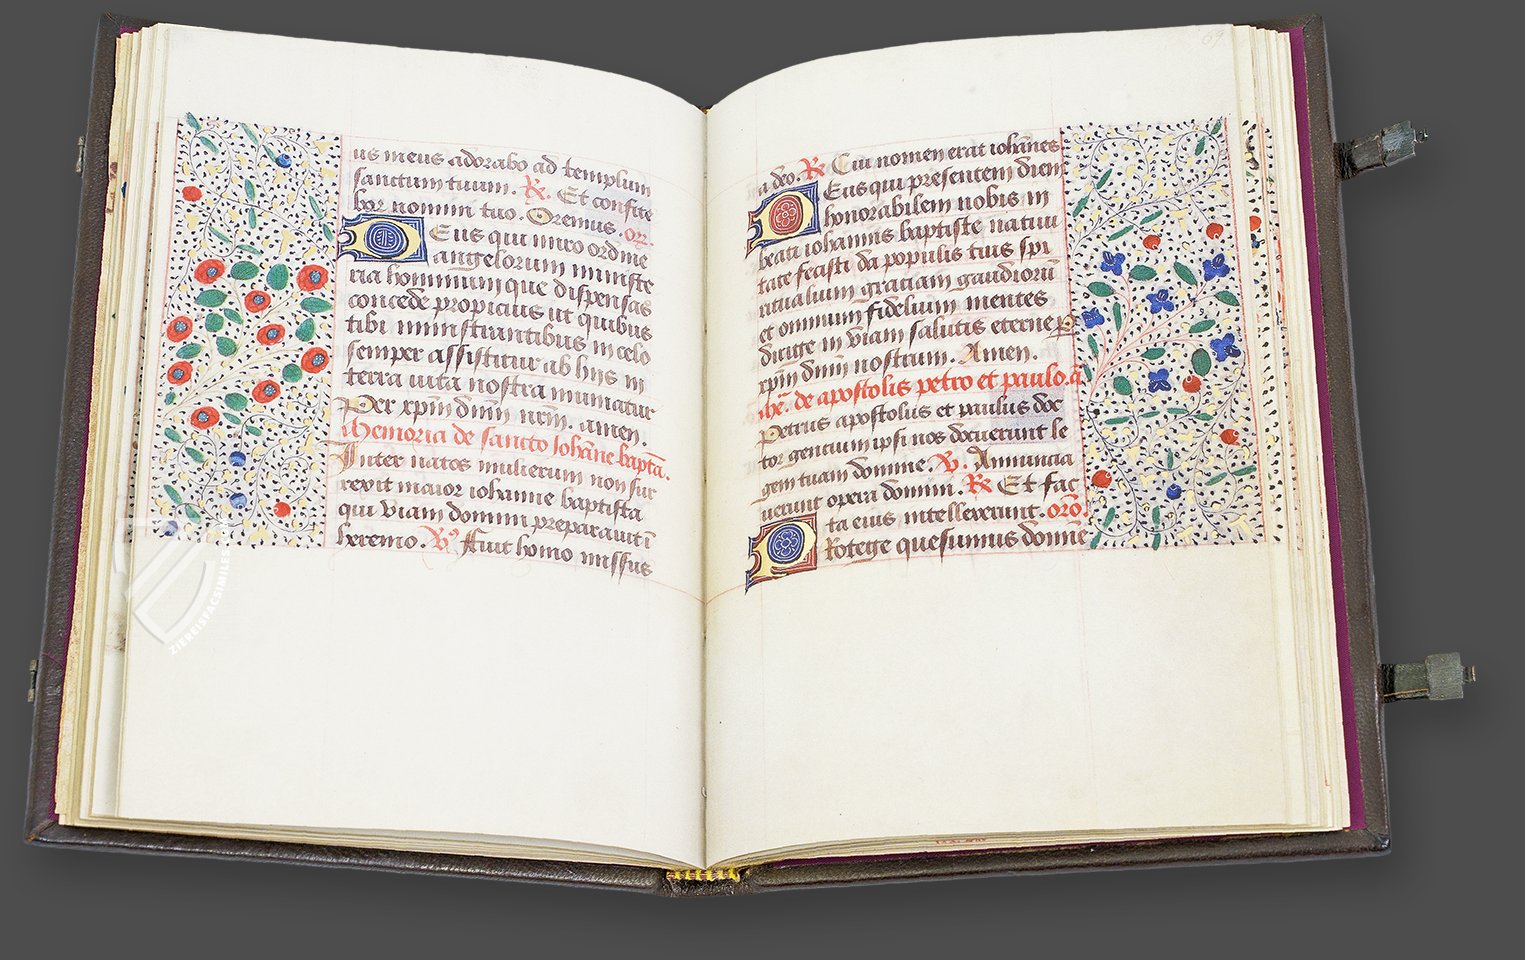 us meus adorabo ad templum
sanctum tuum. R. Et confite
bor nomini tuo. Oremus. or.
Deus qui miro ordine
angelorum ministe
ria hominumque dispensas
concede propicius ut quibus
tibi ministrantibus in celo
semper assistitur ab hijs in
terra uita nostra muniatur
Per xpm dnm nrm. amen.
Memoria de sancto Iohane bapta.
Inter natos mulierum non sur
rexit maior iohanne baptista
qui viam domini preparauit i
heremo. V. Fuit homo missus
a deo. R. Cui nomen erat iohanes
Deus qui presentem diem
honorabilem nobis in
beati iohannis baptiste natiui
tate fecisti da populis tuis spi
ritualium graciam gaudioru
et omnium fidelium mentes
dirige in viam salutis eterne p
xpm dnm nostrum. Amen.
de apostolis petro et paulo. a
Petrus apostolus et paulus doc
tor gentium ipsi nos docuerunt le
gem tuam domine. V. Annuncia
uerunt opera domini. R. Et fac
ta eius intellexerunt. oro.
Protege quesumus domine
67
ZIEREIS FACSIMILES